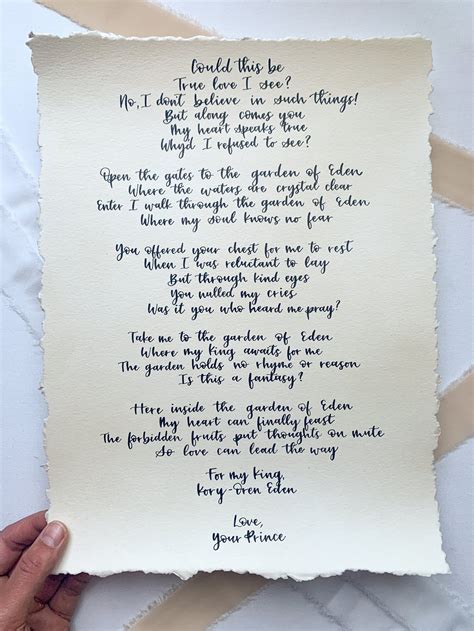 Could this be
True love I see?
No, I dont believe in such things!
But along comes you
My heart speaks true
Why'd I refused to see?
Open the gates to the garden of Eden
Where the waters are crystal clear
Enter I walk through the garden of Eden
Where my soul knows no fear
You offered your chest for me to rest
When I was reluctant to lay
But through kind eyes
You nulled my cries
Was it you who heard me pray?
Take me to the garden of Eden
Where my King awaits for me
The garden holds no rhyme or reason
Is this a fantasy?
Here inside the garden of Eden
My heart can finally feast
The forbidden fruits put thoughts on mute
So love can lead the way
For my King,
Kory-Oren Eden
Love,
Your Prince